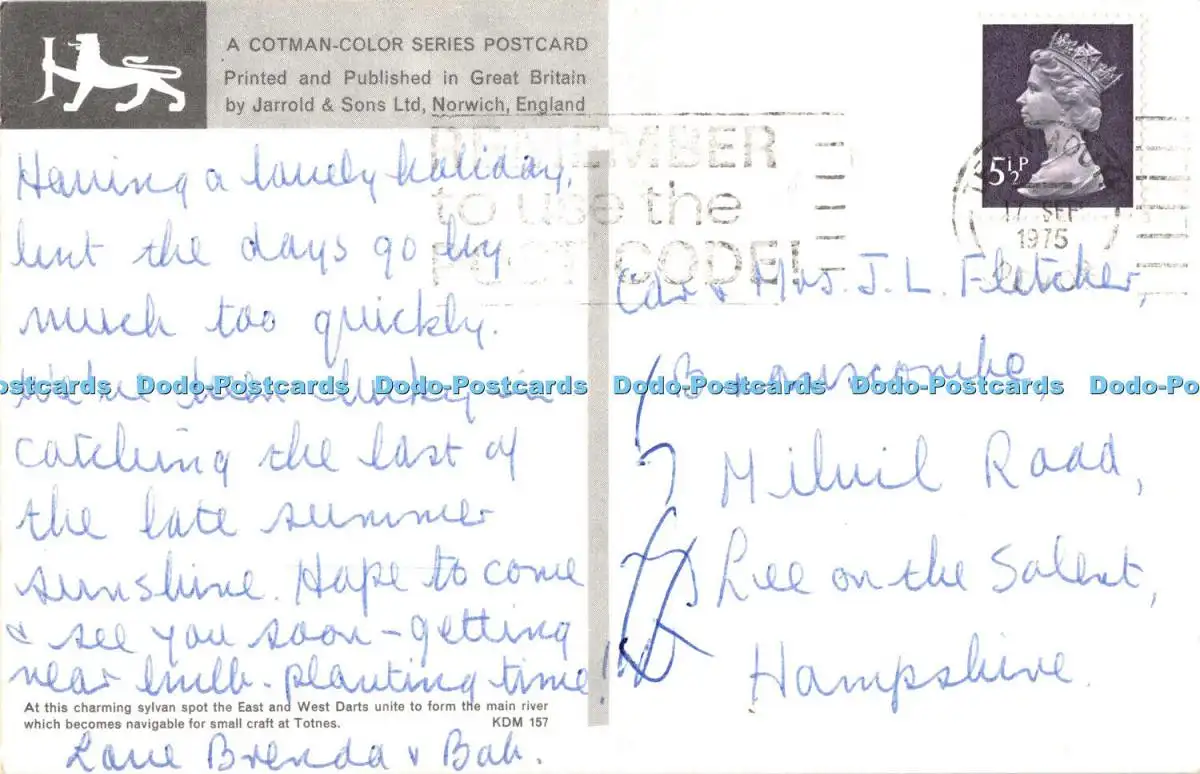 A COTMAN-COLOR SERIES POSTCARD
Printed and Published in Great Britain
by Jarrold & Sons Ltd, Norwich, England
REMEMBER
to use the
POST CODE!
5½P
17 SEP
1975
Having a lovely holiday,
but the days go by
much too quickly.
We've been lucky in
catching the last of
the late summer
sunshine. Hope to come
& see you soon - getting
near bulb-planting time!
Love Brenda & Bob.
At this charming sylvan spot the East and West Darts unite to form the main river
which becomes navigable for small craft at Totnes.
KDM 157
& Mrs. J. L. Fletcher,
Road,
Lee on the Solent,
Hampshire.
Dodo-Postcards Dodo-Postcards Dodo-Postcards Dodo-Postcards